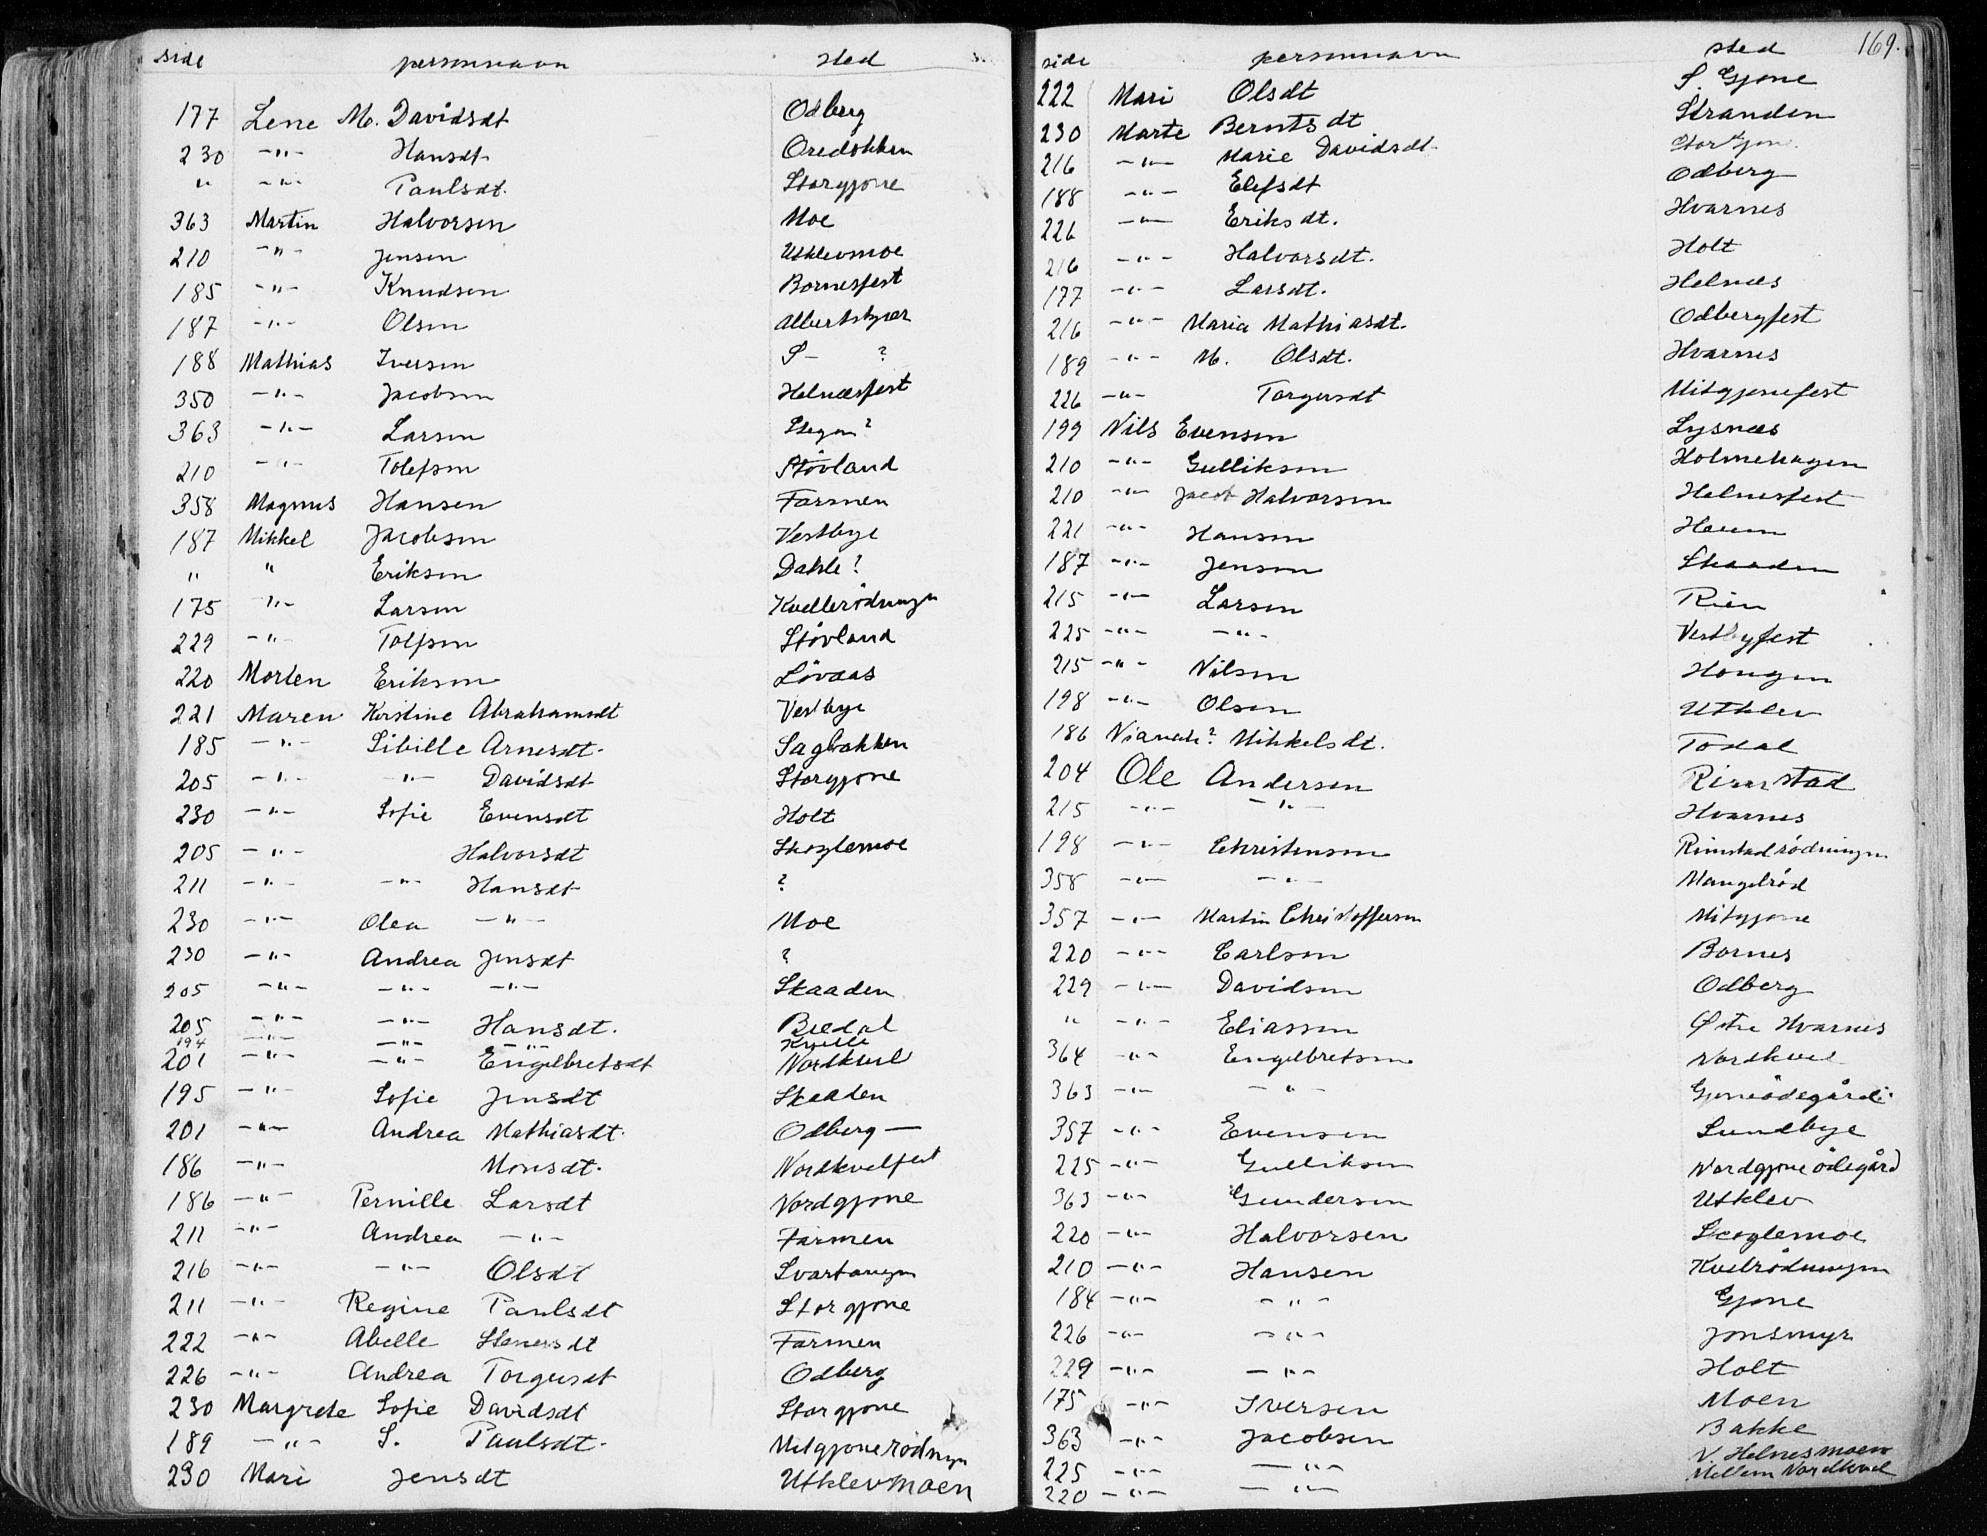 side personnavn sted
177 Lene M. Davidsdt Odberg
230 -"- Hansdt Oredokken
" -"- Paulsdt. Storgjone
363 Martin Halvorsen Moe
210 -"- Jensen Utklevmoe
185 -"- Knudsen Bornesfest
187 -"- Olsen Albertskjær
188 Mathias Iversen S- ?
350 -"- Jacobsen Helnæsfest
363 -"- Larsen ?
210 -"- Tolefsen Støvland
358 Magnus Hansen Farmen
187 Mikkel Jacobsen Vestbye
" " Eriksen Dahle?
175 -"- Larsen Kvellerödningen
229 -"- Tolfsen Støvland
220 Morten Eriksen Lövaas
221 Maren Kirstine Abrahamsdt Vestbye
185 -"- Sibille Arnesdt. Sagbakken
205 -"- -"- Davidsdt Storgjone
230 -"- Sofie Evensdt Holt
205 -"- Halvorsdt Skoglemoe
211 -"- -"- Hansdt ?
230 -"- Olea -"- Moe
230 -"- Andrea Jensdt ?
205 -"- -"- -"- Skaaden
205 -"- -"- Hansdt. Bredal
194 -"- -"- -"- Kvelle
201 -"- -"- Engelbretsdt Nordkvel
195 -"- Sofie Jensdt Skaaden
201 -"- Andrea Mathiasdt. Odberg —
186 -"- Monsdt. Nordkvelfest
186 -"- Pernille Larsdt Nordgjone
211 -"- Andrea -"- Farmen
216 -"- -"- Olsdt Svartangen
211 -"- Regine Paulsdt Storgjone
222 -"- Abelle Stenersdt Farmen
226 -"- Andrea Torgersdt Odberg
230 Margrete Sofie Davidsdt Storgjone
189 -"- S. Paulsdt. Mitgjonerødngn
230 Mari Jensdt Utklevmoen
side personnavn sted 169.
222 Mari Olsdt S. Gjone
230 Marte Berntsdt Stranden
216 -"- Marie Davidsdt. Storgjone
188 -"- Elefsdt Odberg
226 -"- Eriksdt. Hvarnes
216 -"- Halvorsdt. Holt
177 -"- Larsdt. Helnæs
216 -"- Maria Mathiasdt. Odbergfest
189 -"- M. Olsdt. Hvarnes
226 -"- Torgersdt Mitgjonefest
199 Nils Evensen Lysnæs
210 -"- Gulliksen Holmehagen
210 -"- Jacob Halvorsen Helnesfest
221 -"- Hansen Haum
187 -"- Jensen Skaaden
215 -"- Larsen Rien
225 -"- -"- Vestbyfest
215 -"- Nilsen Hougen
198 -"- Olsen Utklev
186 Nianah? Mikkelsdt. Todal
204 Ole Andersen Rimstad
215 -"- -"- Hvarnes
198 -"- Christensen Rimstadrödningen
358 -"- -"- Mangelrød
357 -"- Martin Christoffersen Mitgjone
220 -"- Carlsen Bornes
229 -"- Davidsen Odberg
" -"- Eliassen Østre Hvarnes
364 -"- Engelbretsen Nordkvel
363 -"- -"- Gjoneödegård:
357 -"- Evensen Sundbye
225 -"- Gulliksen Nordgjone ödegård
363 -"- Gundersen Utklev
220 -"- Halvorsen Skoglemoe
210 -"- Hansen Kvelrödningen
184 -"- -"- Gjone
226 -"- -"- Jonsmyr
229 -"- -"- Holt
175 -"- Iversen Moen
363 -"- Jacobsen Bakke
225 -"- -"- N. Helnesmoen
220 -"- -"- Mellem Nordkvel